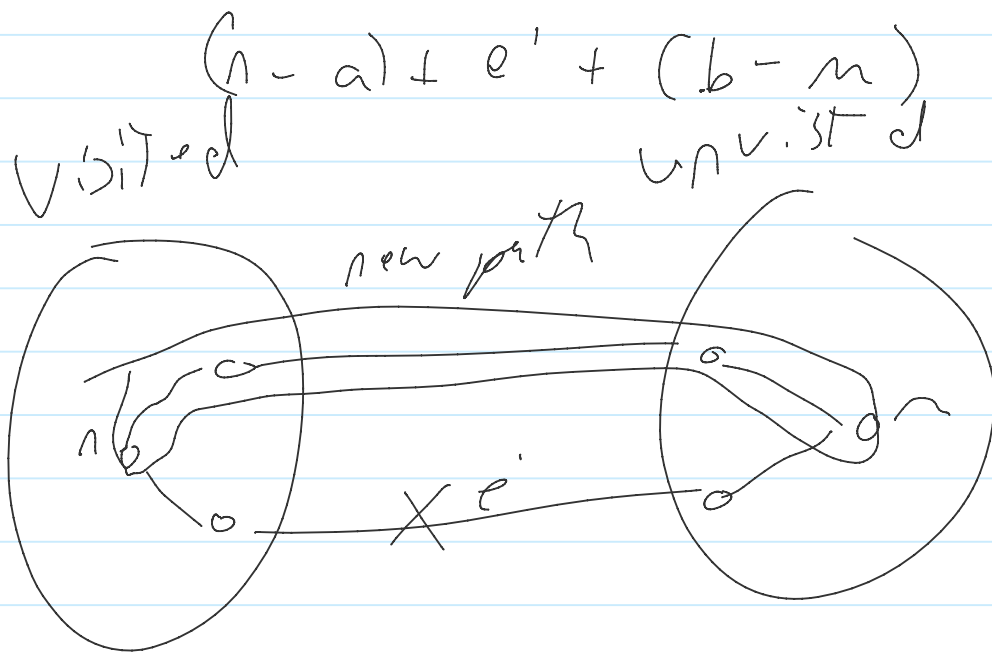 (n - a) + e' + (b - m)
visited unvisted
new path
n m
X e'